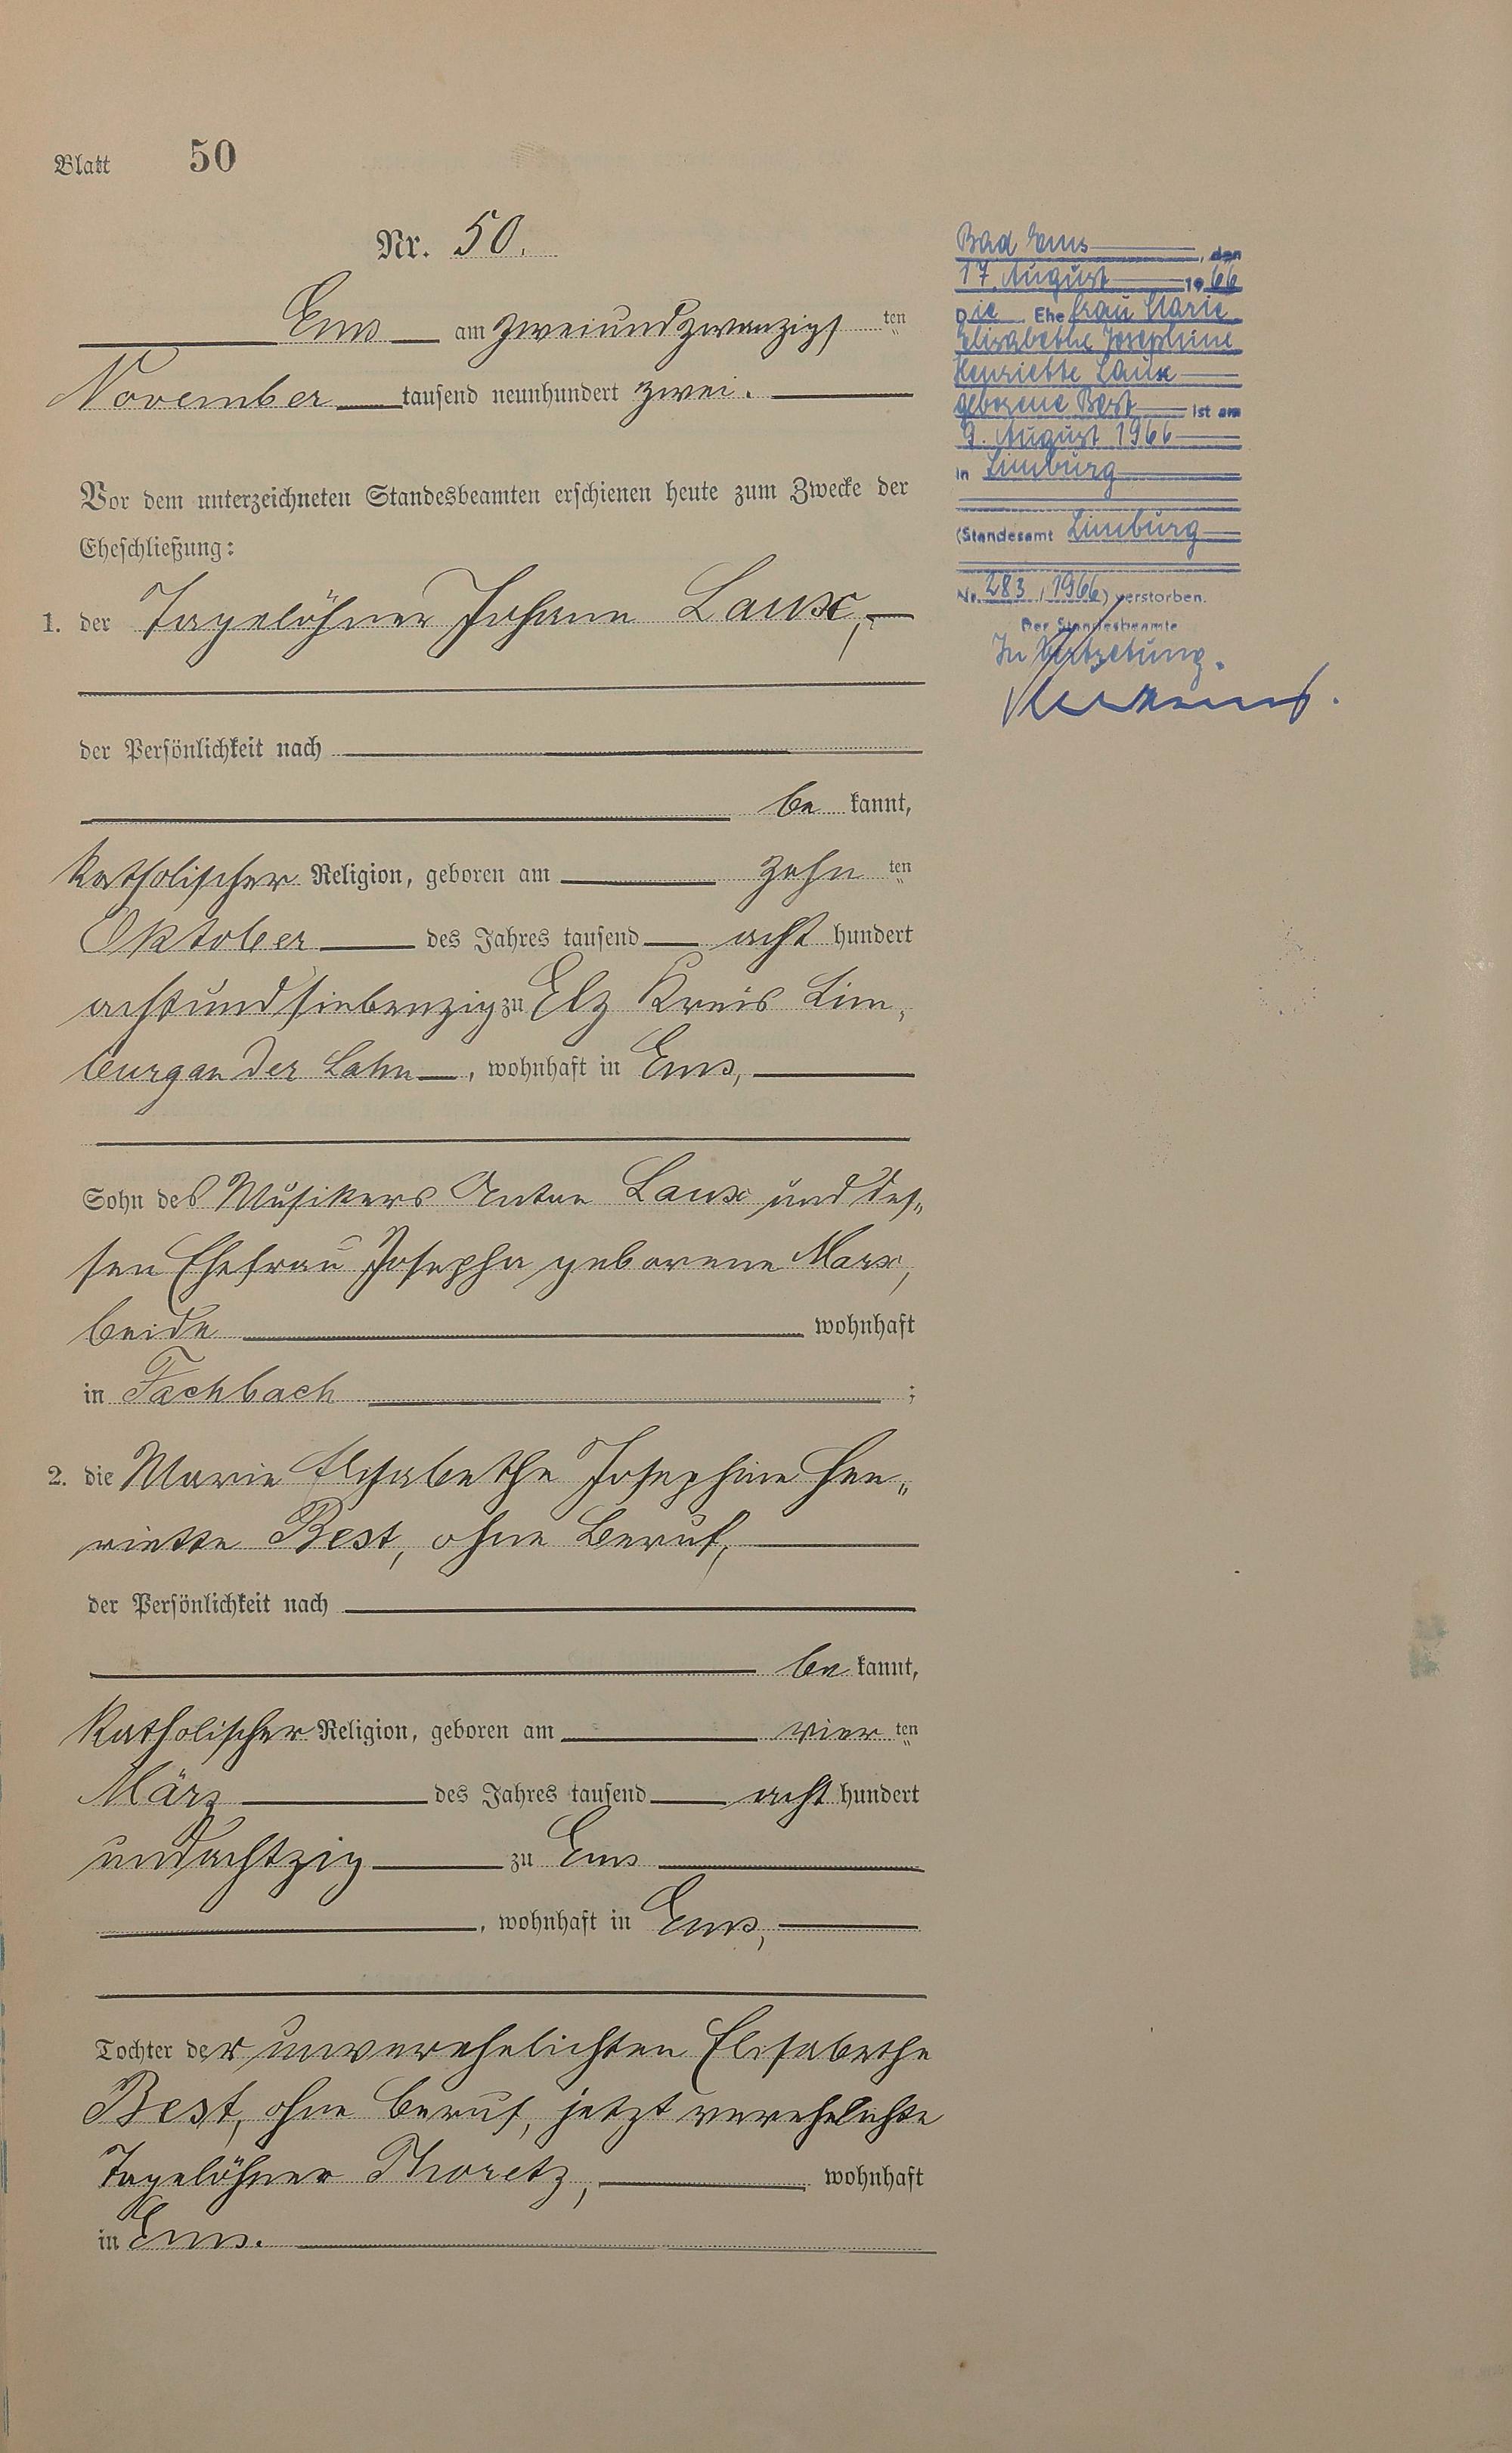 Blatt 50
Nr. 50.
Ems am zweiundzwanzigsten
November tausend neunhundert zwei.
Vor dem unterzeichneten Standesbeamten erschienen heute zum Zwecke der
Eheschließung:
1. der Tagelöhner Johann Laux,
der Persönlichkeit nach
be kannt,
katholischer Religion, geboren am zehn ten
Oktober des Jahres tausend acht hundert
achtundsiebenzig zu Elz Kreis Lim„
burg an der Lahn, wohnhaft in Ems,
Sohn des Musikers Anton Laux und des„
sen Ehefrau Josepha geborene Marx,
beide wohnhaft
in Fachbach ;
2. die Marie Elisabethe Josephine Hen„
riette Best, ohne Beruf,
der Persönlichkeit nach
be kannt,
katholischer Religion, geboren am vier ten
März des Jahres tausend acht hundert
undachtzig zu Ems
, wohnhaft in Ems,
Tochter der unverehelichten Elisabethe
Best, ohne Beruf, jetzt verehelichte
Tagelöhner Thoretz, wohnhaft
in Ems.
Bad Ems, den
17. August 1966
Die Ehefrau Marie
Elisabethe Josephine
Henriette Laux
geborene Best ist am
9. August 1966
in Limburg
(Standesamt Limburg
Nr. 283/1966) verstorben.
Der Standesbeamte
In Vertretung.